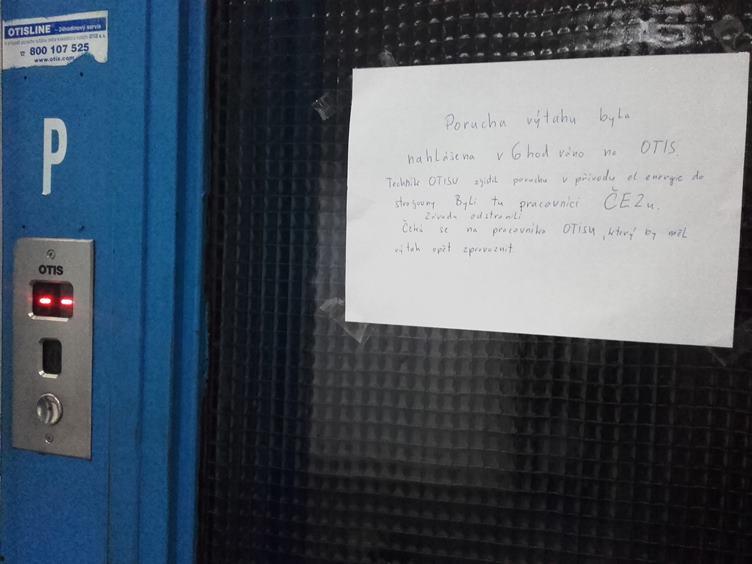 OTISLINE - 24hodinový servis
800 107 525
www.otis.com
P
OTIS
--
Porucha výtahu byla
nahlášena v 6 hod ráno na OTIS.
Technik OTISU zjistil poruchu v přívodu el energie do
strojovny Byli tu pracovníci ČEZu.
Závadu odstranili
Čeká se na pracovníka OTISU, který by měl
výtah opět zprovoznit.